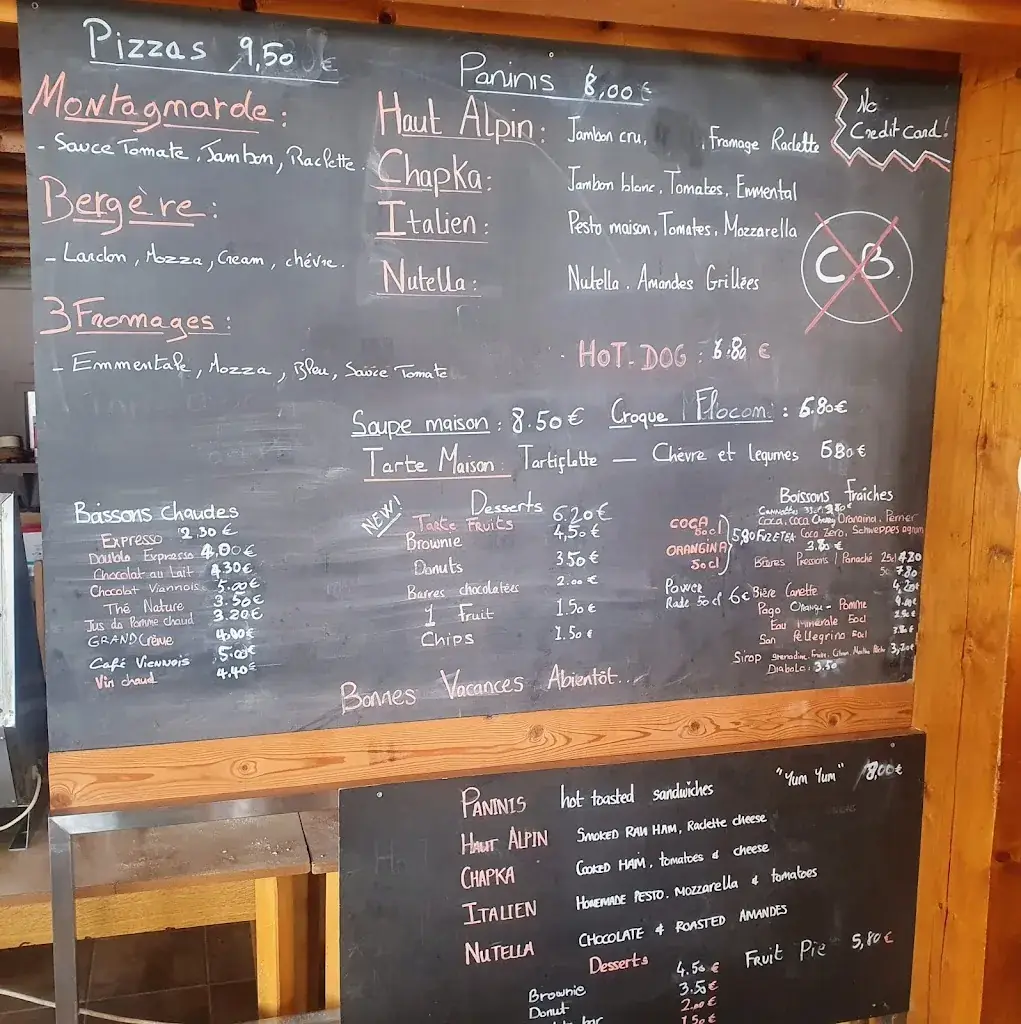 Pizzas 9,50 €
Montagnarde :
- Sauce Tomate, Jambon, Raclette.
Bergère :
- Lardon, Mozza, Cream, chèvre.
3 Fromages :
- Emmentale, Mozza, Bleu, Sauce Tomate
Paninis 8,00 €
Haut Alpin : Jambon cru, , Fromage Raclette
Chapka : Jambon blanc, Tomates, Emmental
Italien : Pesto maison, Tomates, Mozzarella
Nutella : Nutella. Amandes Grillées
No
Credit card!
CB
HOT-DOG : 6.80 €
Soupe maison : 8.50 € Croque Flocon : 6.80 €
Tarte Maison : Tartiflette — Chèvre et legumes 5.80 €
Boissons Chaudes
Expresso 2.30 €
Double Expresso 4.00 €
Chocolat au Lait 4.30 €
Chocolat Viennois 5.00 €
Thé Nature 3.50 €
Jus de Pomme chaud 3.20 €
GRAND Crème 4.00 €
Café Viennois 5.00 €
Vin chaud 4.40 €
NEW!
Desserts
Tarte Fruits 6.20 €
Brownie 4,50 €
Donuts 3.50 €
Barres chocolatées 2.00 €
1 Fruit 1.50 €
Chips 1.50 €
Boissons fraîches
Cannettes 33cl 3.80 €
Coca, Coca Cherry Orangina, Perrier
FUZETEA Coca Zero, Schweppes agrum
3.80 €
COCA
50cl
ORANGINA
50cl
5,90
Bières Pressions / Panaché 25cl 4.20
50 7.80
Power
Rade 50cl 6 €
Bière Canette 4.20 €
Pago Orange - Pomme
Eau Minérale 50cl
San Pellegrino 50cl
Sirop grenadine, Fraise, Citron, Menthe, Pêche 3,20 €
Diabolo : 3.50
Bonnes Vacances Abientôt...
PANINIS hot toasted sandwiches "Yum Yum" 8,00 €
HAUT ALPIN SMOKED RAW HAM, Raclette cheese
CHAPKA COOKED HAM, tomatoes & cheese
ITALIEN HOMEMADE PESTO, Mozzarella & tomatoes
NUTELLA CHOCOLATE & ROASTED AMANDES
Desserts FRUIT PIE 5,80 €
Brownie 4.50 €
Donut 3.50 €
bar 2.00 €
1.50 €